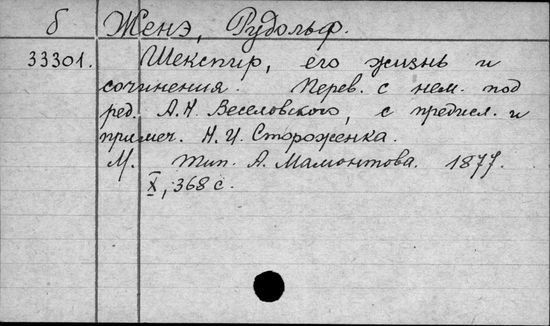 б Женэ, Рудольф.
33301. Шекспир, его жизнь и
сочинения. Перев. с нем. под
ред. А.Н. Веселовского, с предисл. и
примеч. Н.И. Стороженка.
М. Тип. А. Мамонтова. 1877.
X, 368 с.